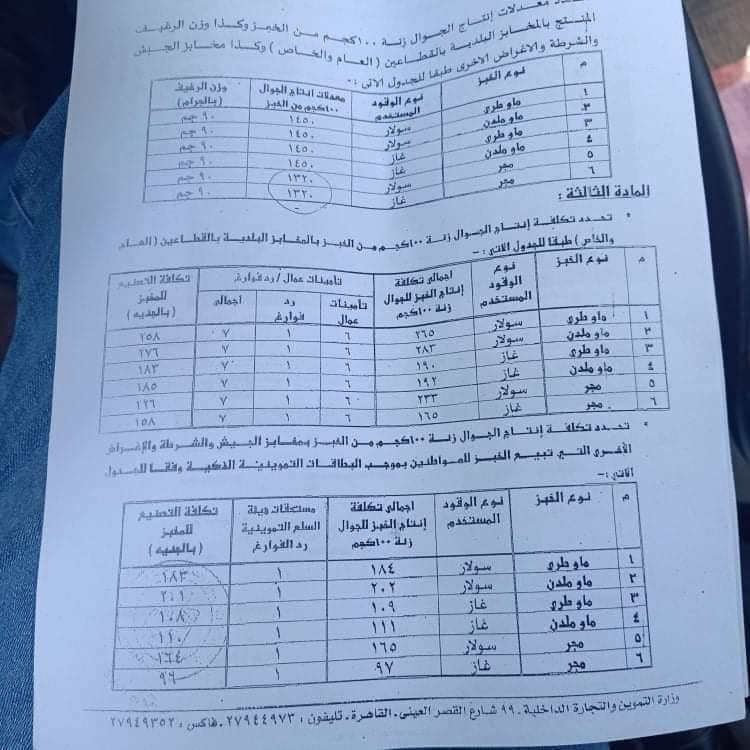 تحدد معدلات إنتاج الجوال زنة ١٠٠كجم من الخبز وكذا وزن الرغيف
المنتج بالمخابز البلدية بالقطاعين (العام والخاص) وكذا مخابز الجيش
والشرطة والاغراض الاخرى طبقا للجدول الاتى :-
م نوع الخبز نوع الوقود المستخدم معدلات إنتاج الجوال ١٠٠كجم من الخبز وزن الرغيف (بالجرام)
١ ماو طرى سولار ١٤٥٠ ٩٠ جم
٢ ماو ملدن سولار ١٤٥٠ ٩٠ جم
٣ ماو طرى غاز ١٤٥٠ ٩٠ جم
٤ ماو ملدن غاز ١٤٥٠ ٩٠ جم
٥ مجر سولار ١٣٢٠ ٩٠ جم
٦ مجر غاز ١٣٢٠ ٩٠ جم
المادة الثالثة :
• تحدد تكلفة إنتاج الجوال زنة ١٠٠كجم من الخبز بالمخابز البلدية بالقطاعين (العام
والخاص) طبقا للجدول الاتى :-
م نوع الخبز نوع الوقود المستخدم اجمالى تكلفة إنتاج الخبز للجوال زنة ١٠٠كجم تأمينات عمال / رد فوارغ تكلفة التصنيع للمخبز (بالجنيه)
تأمينات عمال رد فوارغ اجمالى
١ ماو طرى سولار ٢٦٥ ٦ ١ ٧ ٢٥٨
٢ ماو ملدن سولار ٢٨٣ ٦ ١ ٧ ٢٧٦
٣ ماو طرى غاز ١٩٠ ٦ ١ ٧ ١٨٣
٤ ماو ملدن غاز ١٩٢ ٦ ١ ٧ ١٨٥
٥ مجر سولار ٢٣٣ ٦ ١ ٧ ٢٢٦
٦ مجر غاز ١٦٥ ٦ ١ ٧ ١٥٨
• تحدد تكلفة إنتاج الجوال زنة ١٠٠كجم من الخبز بمخابز الجيش والشرطة والإغراض
الأخرى التى تبيع الخبز للمواطنين بموجب البطاقات التموينية الذكية وفقا للجدول
الاتى :-
م نوع الخبز نوع الوقود المستخدم اجمالى تكلفة إنتاج الخبز للجوال زنة ١٠٠كجم مستحقات هيئة السلع التموينية رد الفوارغ تكلفة التصنيع للمخبز (بالجنيه)
١ ماو طرى سولار ١٨٤ ١ ١٨٣
٢ ماو ملدن سولار ٢٠٢ ١ ٢٠١
٣ ماو طرى غاز ١٠٩ ١ ١٠٨
٤ ماو ملدن غاز ١١١ ١ ١١٠
٥ مجر سولار ١٦٥ ١ ١٦٤
٦ مجر غاز ٩٧ ١ ٩٦
وزارة التموين والتجارة الداخلية - ٩٩ شارع القصر العينى - القاهرة - تليفون : ٢٧٩٤٤٩٧٣ - فاكس : ٢٧٩٤٩٣٥٢